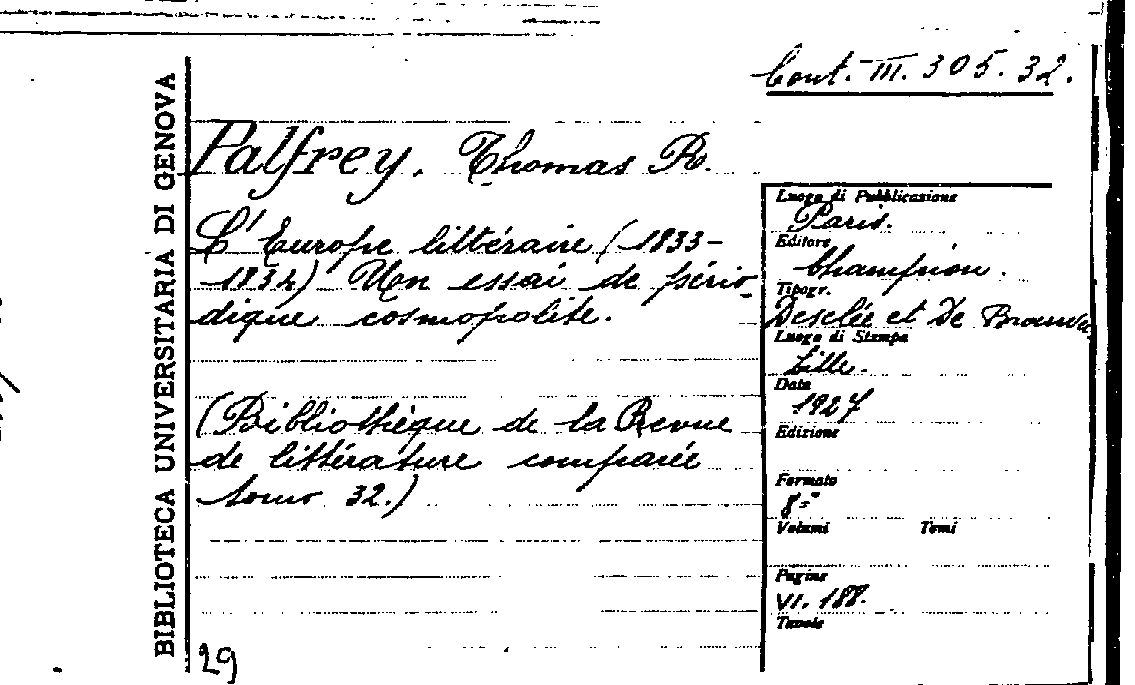 Cont. III. 305. 32.
BIBLIOTECA UNIVERSITARIA DI GENOVA
Palfrey, Thomas R.
L'Europe littéraire (1833-
1834) Un essai de pério-
dique cosmopolite.
(Bibliothèque de la Revue
de littérature comparée
tomo 32.)
29
Luogo di Pubblicazione
Paris.
Editore
Champion.
Tipogr.
Desclée et De Brouwer
Luogo di Stampa
Lille.
Data
1927
Edizione
Formato
8°
Volumi Tomi
Pagine
VI. 188.
Tavole